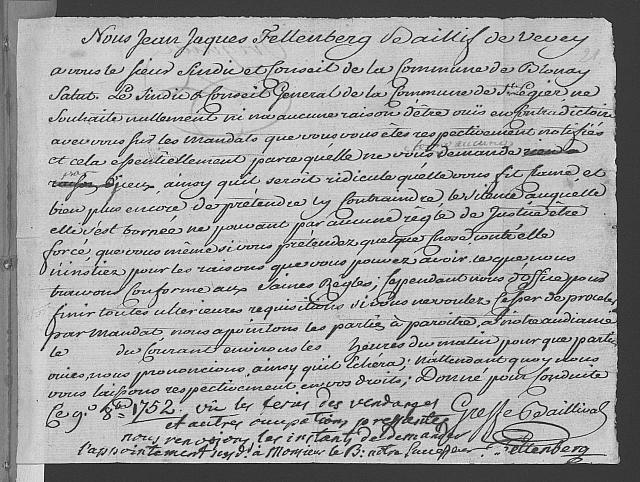 Nous Jean Jaques Fellenberg Baillif de Vevey
a vous le sieur Sindic et Conseil de la Commune de Blonay
Salut. Le Sindic & Conseil General de la Commune de St Legier ne
Souhaite nullement ni na aucune raison d'être ouis en Contradictoire
avec vous sur les mandats que vous vous etes respectivement notifiés
et cela essentiellement parce qu'elle ne vous demande
ainsy qu'il seroit ridicule quelle vous fit Clame et
bien plus encore de prétendre la contraindre le silence auquelle
elle s'est bornée ne pouvant par aucune regle de Justice être
forcé, que vous même si vous prétendez quelque chose contr'elle
pour les raisons que vous pouvez avoir. Ce que nous
trouvons Conforme aux Saines Regles, Cependant nous d'office pour
finir toutes ulterieures requisitions si vous ne voulez Cesser de proceder
par Mandat nous apointons les parties à paroitre à notre audiance
le du Courant environ les heures du matin pour que parties
ouies, nous prononcions ainsy quil Echéra, N'attendant quoy nous
vous laissons respectivement en vos droits, Donné pour Conduite
Ce 9e 8bre 1752. vu les feries des vendanges
et autres occupations pressantes Greffe Baillival
nous renvoyons les instants de demander
l'appointement à Monsieur le B: notre Successeur. Fellenberg